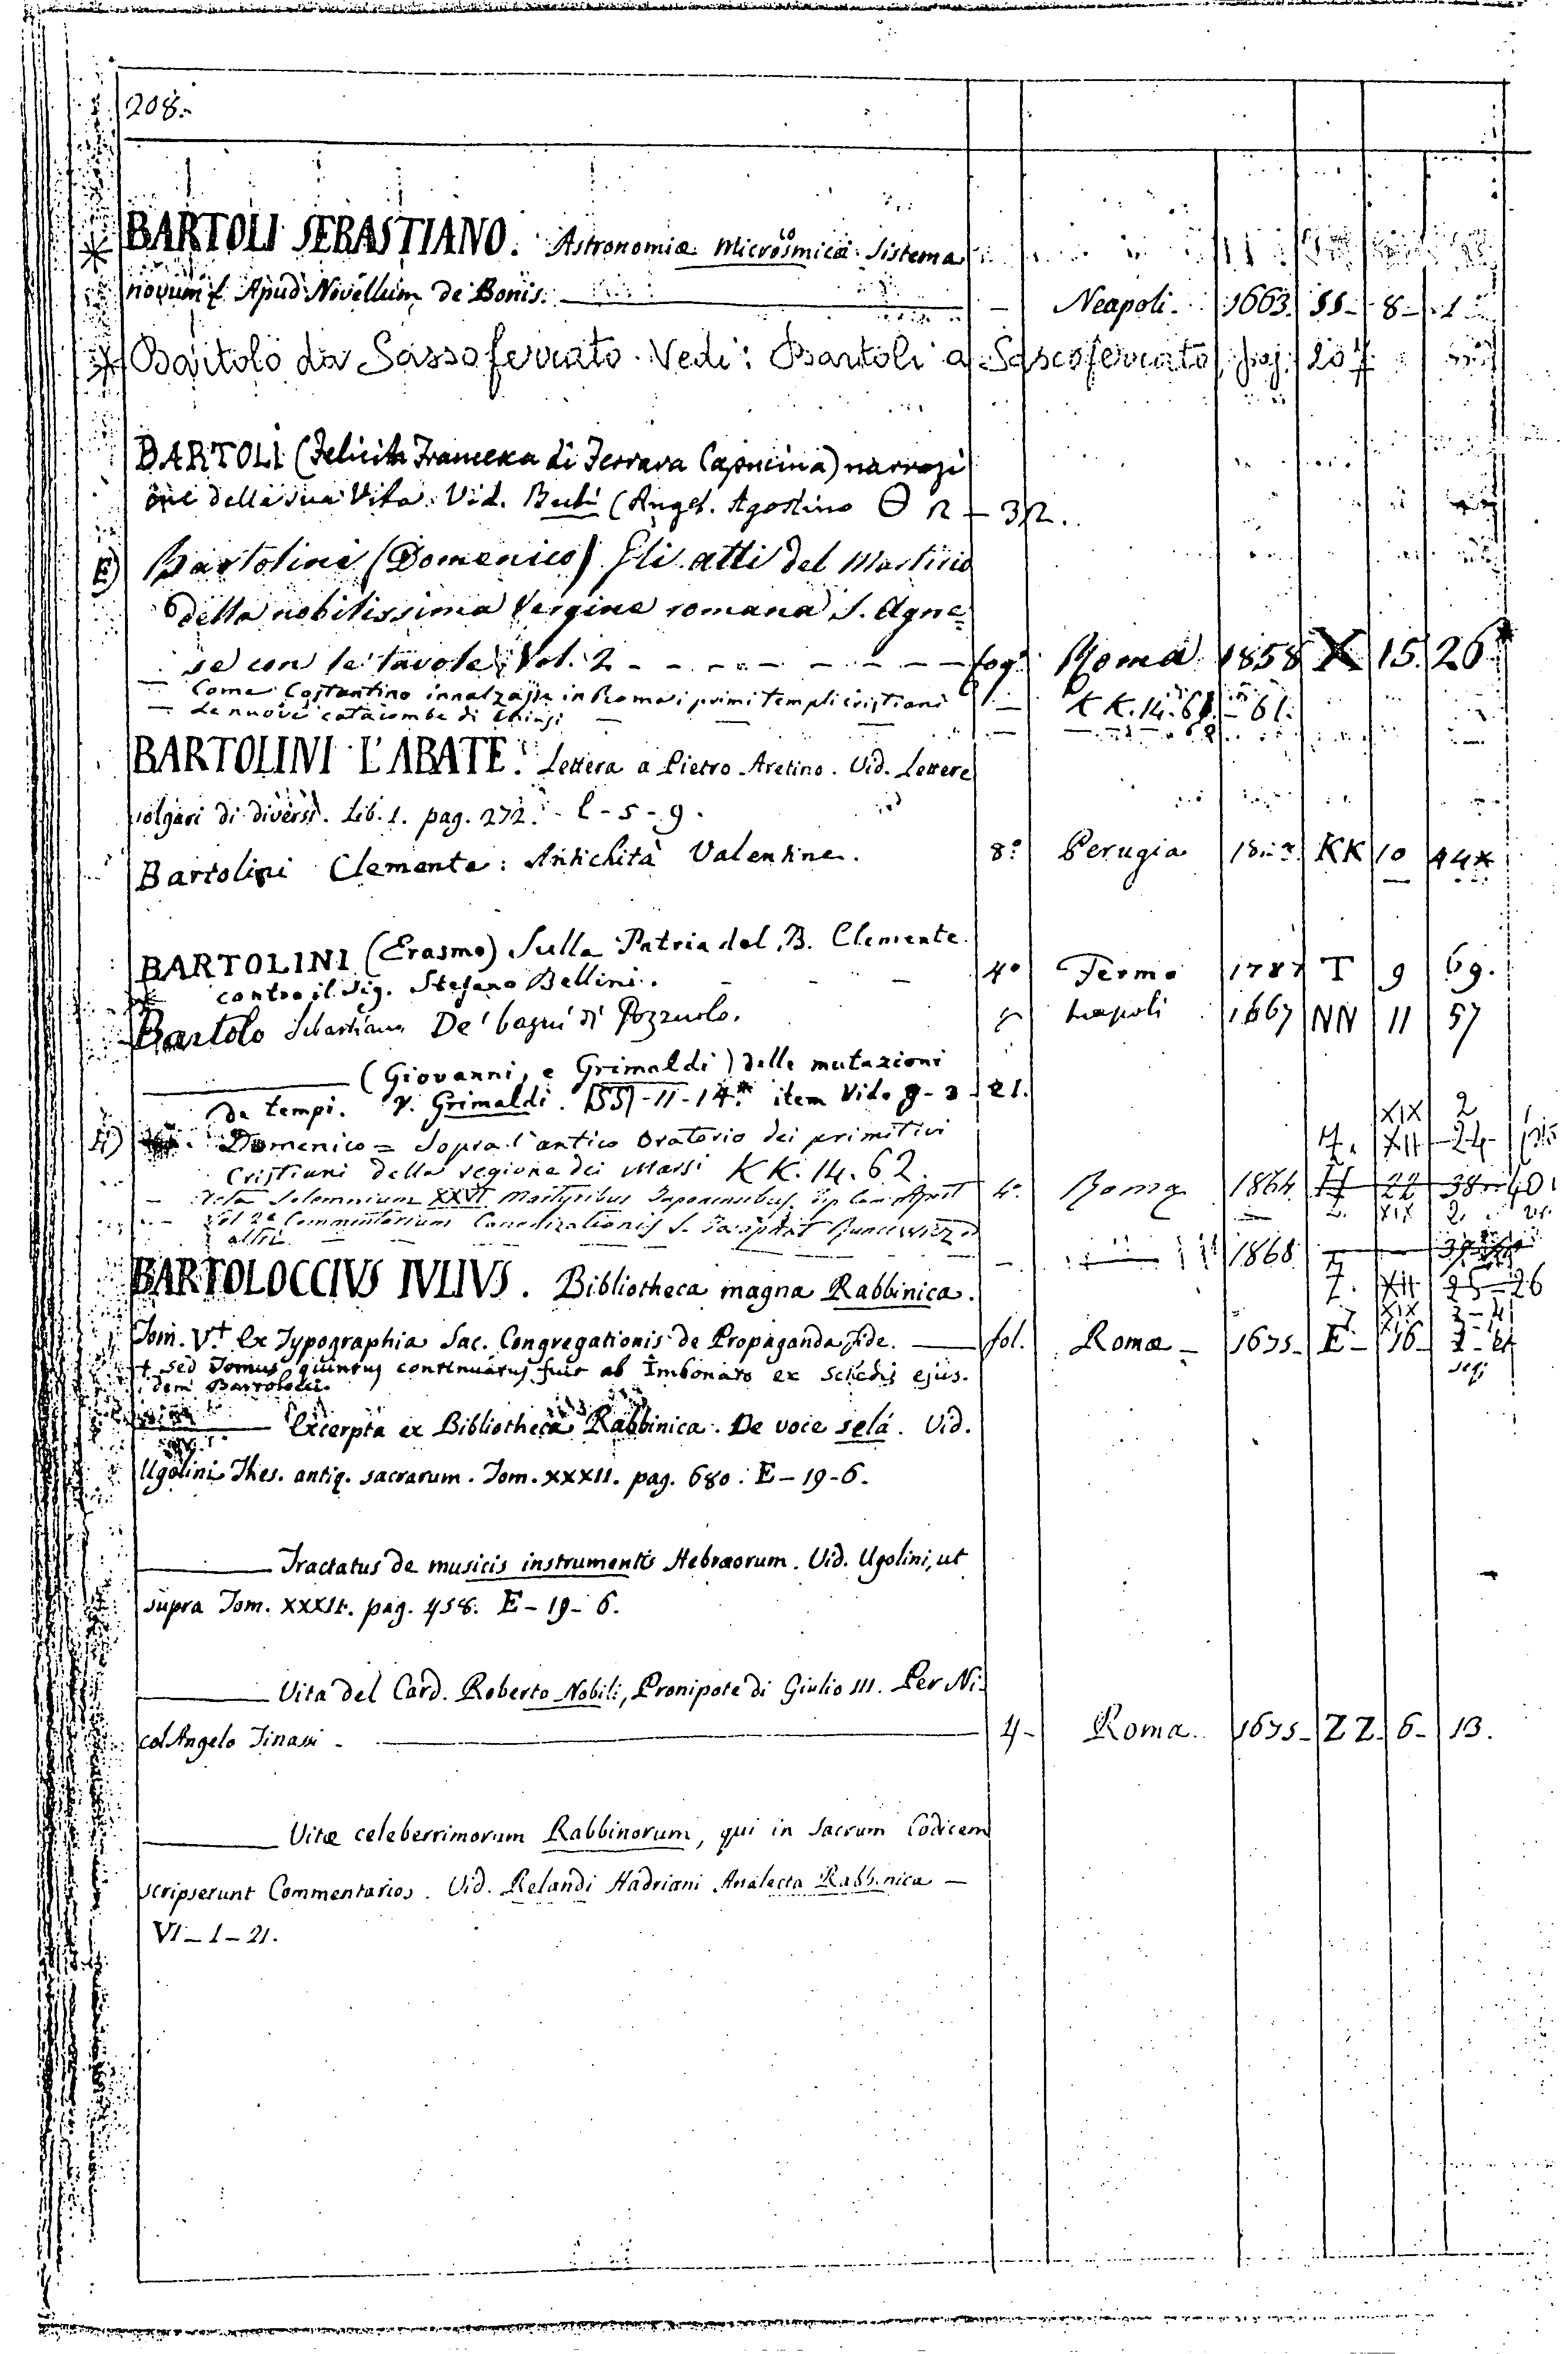 208.
BARTOLI SEBASTIANO. Astronomiæ Microsmicæ Sistema
co
novum. Apud Novellum de Bonis. — Neapoli. 1663. SS- 8- 1
Bartolo da Sassoferrato. Vedi: Bartoli a Sascoferrato, pag. 207
BARTOLI (Felicita Francesca di Ferrara Capucina) narrazi
one della sua Vita. Vid. (Angel. Agostino Θ 12 - 32.
E) Bartolini (Domenico) Gli atti del Martirio
della nobilissima Vergine romana S. Agne=
se con le tavole, Vol. 2 - - - - - - - fog. Roma 1858 X 15. 26
— Come Costantino innalzasse in Roma i primi templi cristiani — KK. 14. 61.
— Le nuove catacombe di Chiusi — — —
BARTOLINI L'ABATE. Lettera a Pietro Aretino. Vid. Lettere
volgari di diversi. Lib. 1. pag. 272. l - 5 - 9.
Bartolini Clemente: Antichità Valentine. 8º Perugia KK 10 44*
BARTOLINI (Erasmo) Sulla Patria del B. Clemente
contro il Sig. Stefano Bellini. - - - 4º Fermo 1787 T 9 69.
Bartolo Sebastiano De' bagni di Pozzuolo. Napoli 1667 NN 11 57
——— (Giovanni, e Grimaldi) delle mutazioni
de tempi. V. Grimaldi. SS-11-14.* item Vid. 9-3-21.
Domenico = Sopra l'antico Oratorio dei primitivi
XIX 2
Z. XII 24
Cristiani della regione dei Marsi KK. 14. 62.
— Acta Solemnium XXVI Martyribus 4º Roma 1864. 22 38 40
— Vol 2º Commentarium Canonizationis S. Josaphat Z. XIX 2.
altri — — — 1868
Z. XII 25-26
BARTOLOCCIUS IVLIVS. Bibliotheca magna Rabbinica.
XIX 3-4
Tom. V.† Ex Typographia Sac. Congregationis de Propaganda Fide. — fol. Romæ - 1675- E- 16- 1- et
seq.
† sed Tomus quintus continuatus fuit ab Imbonato ex schedis ejus.
dem Bartolocci.
——— Excerpta ex Bibliotheca Rabbinica. De voce selá. Vid.
Ugolini Thes. antiq. sacrarum. Tom. XXXII. pag. 680. E-19-6.
——— Tractatus de musicis instrumentis Hebræorum. Vid. Ugolini, ut
supra Tom. XXXII. pag. 458. E-19-6.
——— Vita del Card. Roberto Nobili, Pronipote di Giulio III. Per Ni-
col'Angelo Tinassi - 4- Roma. 1675- ZZ- 6- 13.
——— Vitæ celeberrimorum Rabbinorum, qui in Sacrum Codicem
scripserunt Commentarios. Vid. Relandi Hadriani Analecta Rabbinica —
VI-1-21.